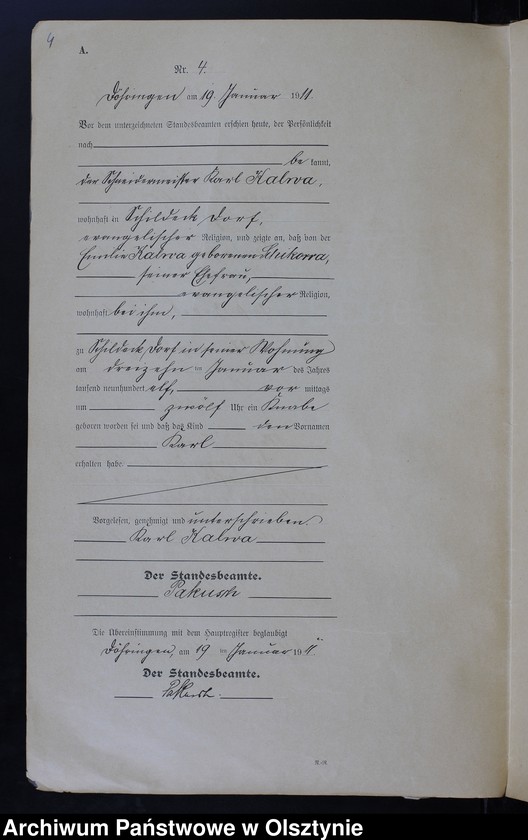 4
A.
Nr. 4.
Döhringen am 19 Januar 1911.
Vor dem unterzeichneten Standesbeamten erschien heute, der Persönlichkeit
nach
be kannt,
der Schneidermeister Karl Kalwa,
wohnhaft in Schildeck Dorf,
evangelischer Religion, und zeigte an, daß von der
Emilie Kalwa geborenen
seiner Ehefrau,
evangelischer Religion,
wohnhaft bei ihm,
zu Schildeck Dorf in seiner Wohnung
am dreizehn ten Januar des Jahres
tausend neunhundert elf, vor mittags
um zwölf Uhr ein Knabe
geboren worden sei und daß das Kind den Vornamen
Karl
erhalten habe.
Vorgelesen, genehmigt und unterschrieben
Karl Kalwa
Der Standesbeamte.
Pakusch
Die Übereinstimmung mit dem Hauptregister beglaubigt
Döhringen, am 19 ten Januar 1911.
Der Standesbeamte.
Pakusch.
Archiwum Państwowe w Olsztynie